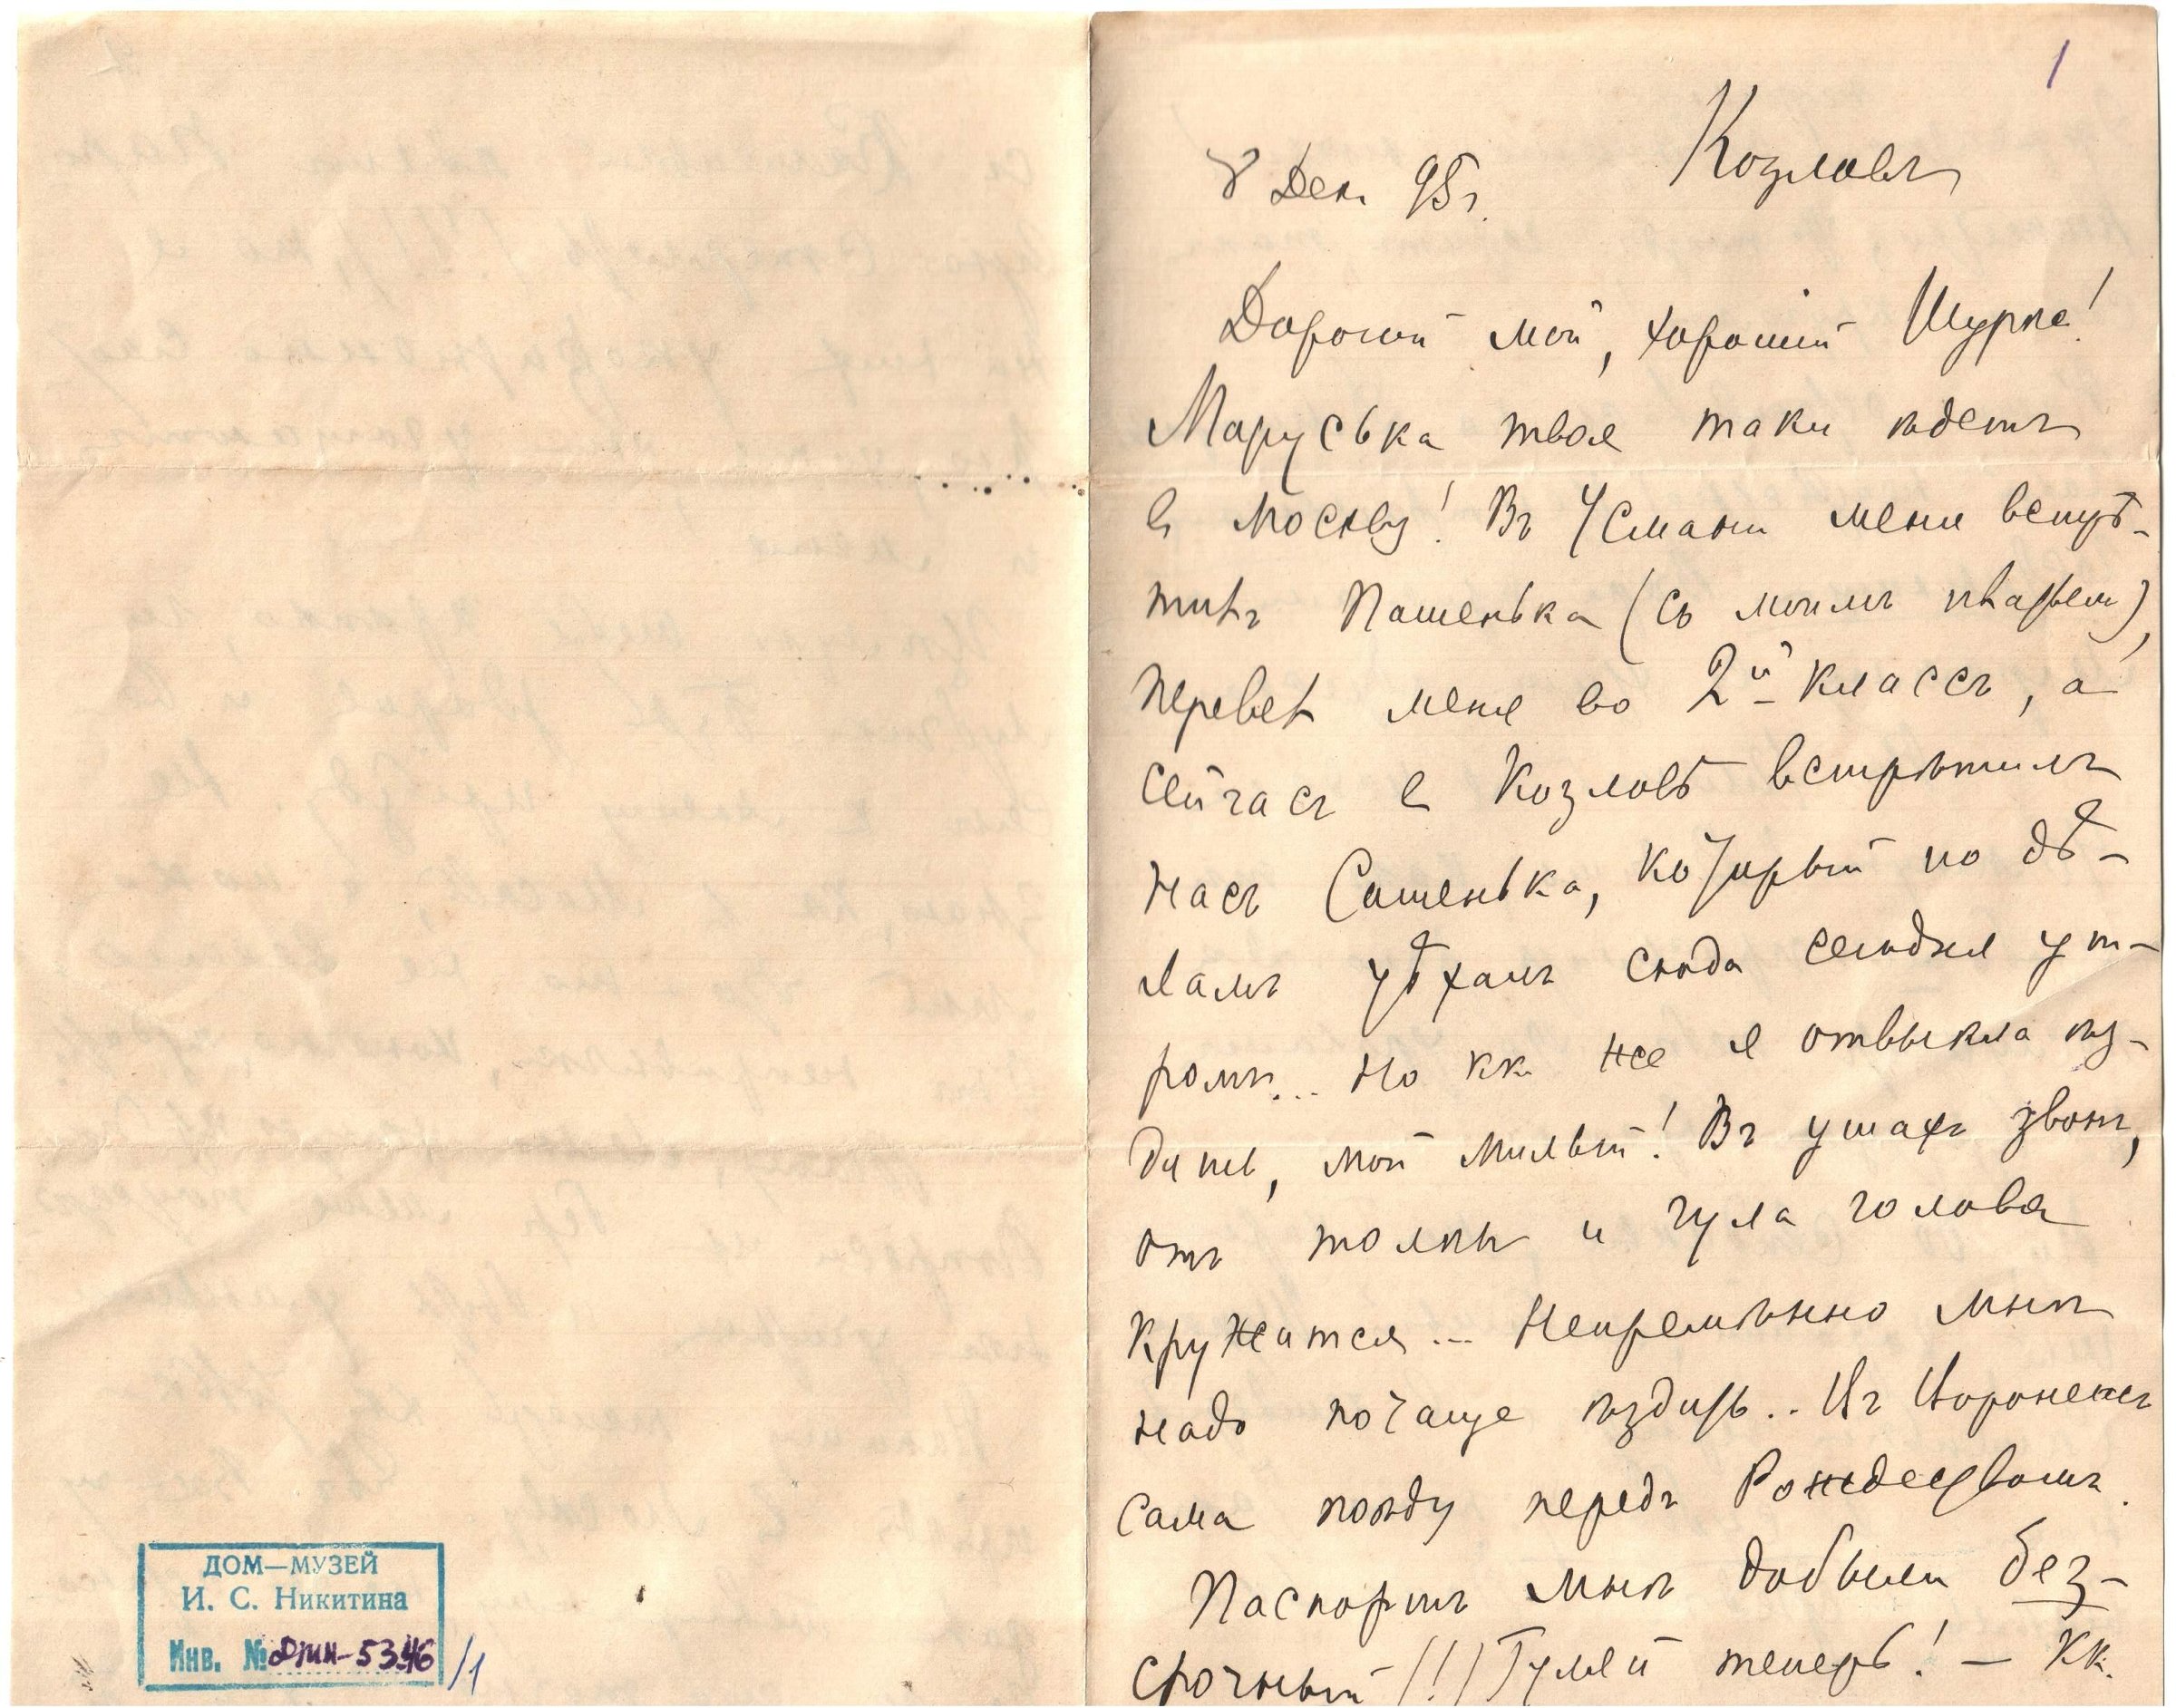 1
Козловъ
8 Дек. 95 г.
Дорогой мой, хороший Шурка!
Маруська твоя таки ѣдетъ
в Москву! Въ Усмани меня встрѣ-
тилъ Пашенька (съ моимъ
перевелъ меня во 2й классъ, а
сейчасъ в Козловѣ встрѣтилъ
насъ Сашенька, который по дѣ-
ламъ уѣхалъ сюда сегодня ут-
ромъ... Но кк же я отвыкла ѣз-
дить, мой милый! Въ ушахъ звонъ,
отъ толпы и гула голова
кружится... Непремѣнно мнѣ
надо почаще ѣздить.. Из Воронежа
сама поѣду передъ Рождествомъ.
Паспортъ мнѣ добыли без-
срочный (!) Гуляй теперь! — Кк.
ДОМ—МУЗЕЙ
И. С. Никитина
Инв. № ДМН-5346/1